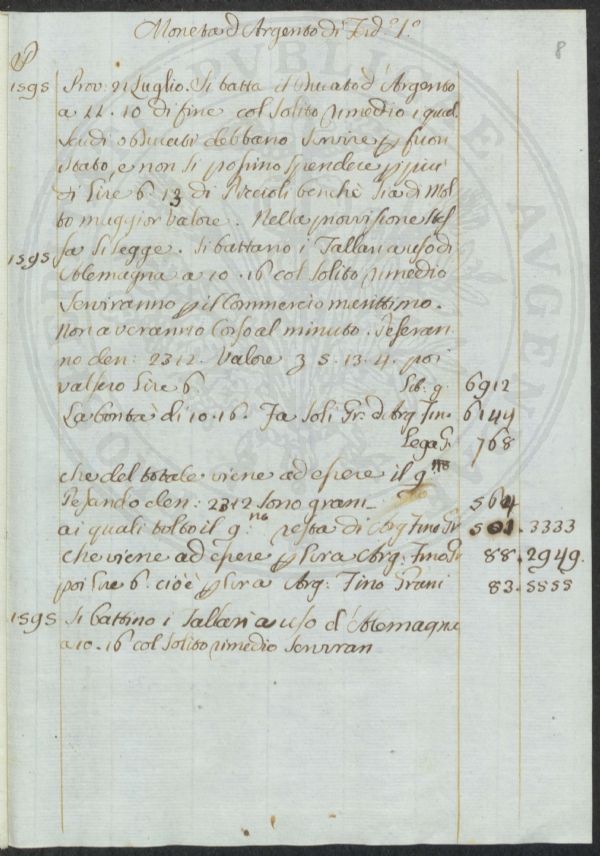 Moneta d'Argento di Ferd.º 1.º
8
1595 Prov: 21 Luglio. Si batta il Ducato d'Argento
a 11. 10 di fine col solito rimedio i quali
scudi o ducati debbano servire p fuori
stato, e non si possino spendere p piu
di Lire 6 13 di Piccioli benchè sia di Mol
to maggior Valore. Nella provvisione stes
1595 sa si legge. Si battano i Tallari a uso di
Alemagna a 10. 16 col solito rimedio
Serviranno p il Commercio marittimo.
Non averanno Corso al minuto. Peseran
no den: 23 12. Valore 3 5. 13. 4. poi
valsero Lire 6. Lib. g. 6912
La bontà di 10. 16. Fa soli Gr. d'Arg Fino 6144
Lega Gr. 768
che del totale viene ad essere il 9.no
Pesando den: 23 12 sono grani 564
ai quali tolto il 9.no resta di Arg Fino Gr 501. 3333
che viene ad essere p Lira Arg: Fino Gr 88. 2949.
poi Lire 6. cioè p Lira Arg: Fino Grani 83. 5555
1595 Si battino i Tallari a uso d'Alemagna
a 10. 16 col solito rimedio Serviran
PVBLIC
AVGEN